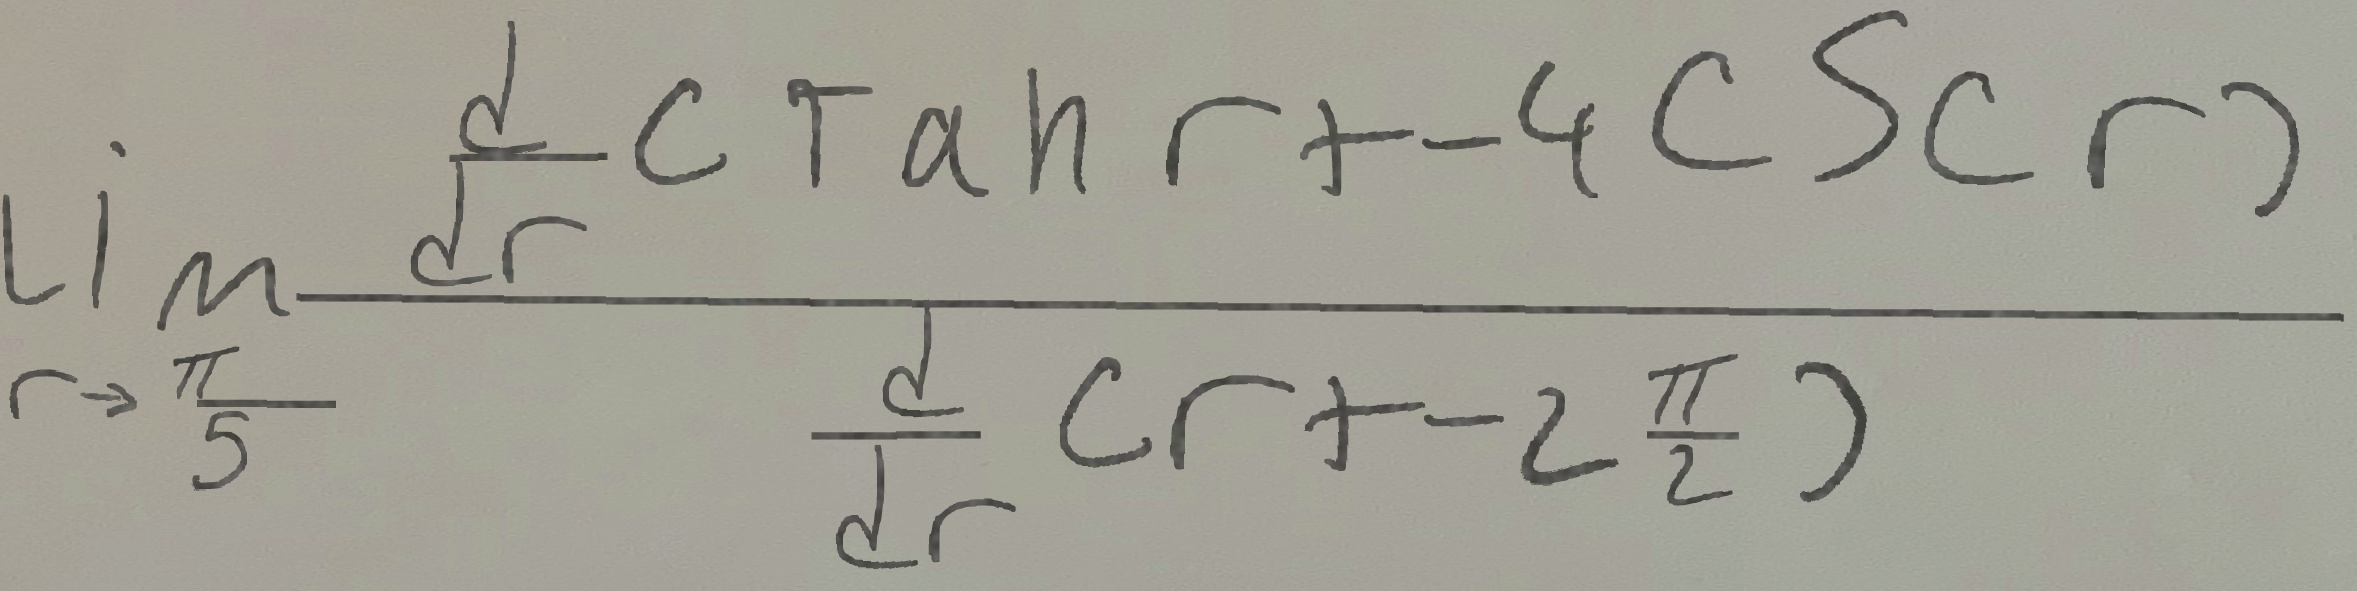 \lim_{r \to \frac{\pi}{5}} \frac{\frac{d}{dr}(\tan r + -4 \csc r)}{\frac{d}{dr}(r + -2 \frac{\pi}{2})}